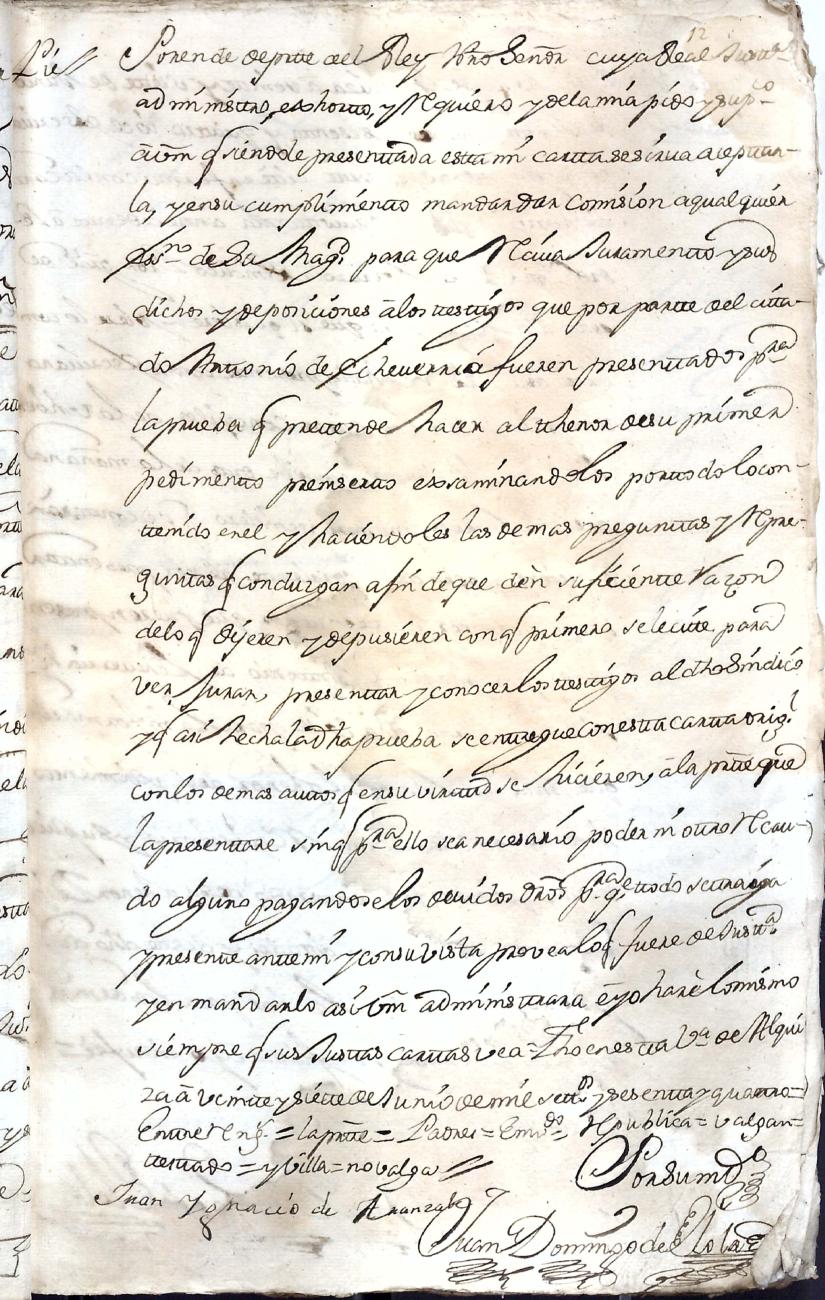 12
Pie//
Por ende de prtte del Rey Nrõ Señor cuya Real Justtª
administtro, exhortto, y Rquiero y dela mia pido y supco
a Vm q siendole presenttada estta mi cartta se sirva aceptar-
la, y en su cumplimientto mandar dar comision a qualquier
Essno de Su Magd para que Rciva Juramentto y sus
dichos y deposiciones â los testtigos que por partte del citta-
do Anttonio de Echeverria fueren presenttados pra
la prueba q prettende hacer al tthenor de su primer
pedimentto preinsertto exsaminandolos por ttodo lo con-
ttenido en el y haciendoles las demas pregunttas y Rpre-
gunttas q conduzgan a fin de que dèn suficientte Razon
delo q dijeren y depusieren con q primero se le citte para
ver, Jurar, presenttar y conocer los testtigos al dho Sindico
y q asi hecha la dha prueba se enttregue con estta cartta origl
con los demas auttos q en su virttud se hicieren, â la prtte que
la presenttare sin q pra ello sea necesario poder ni ottro Rcau-
do alguno pagandoselos devidos drõs pra qe ttodo se trayga
y presentte antte mi y con su vista provea lo q fuere de Justtª
y en mandarlo asi Vm administtrara è yo harè lo mismo
siempre q sus Justtas carttas vea = Fho en estta Vª de Alqui
za â veintte y siette de Junio de mil settos y sesentta y quattro =
Enttre Rengs = la prtte = Padres = Emdo = Rpublica = valgan =
testtado = y Villa = no valga //
Por su md
Juan Ygnacio de Aranzabe
Juan Domingo de Elola